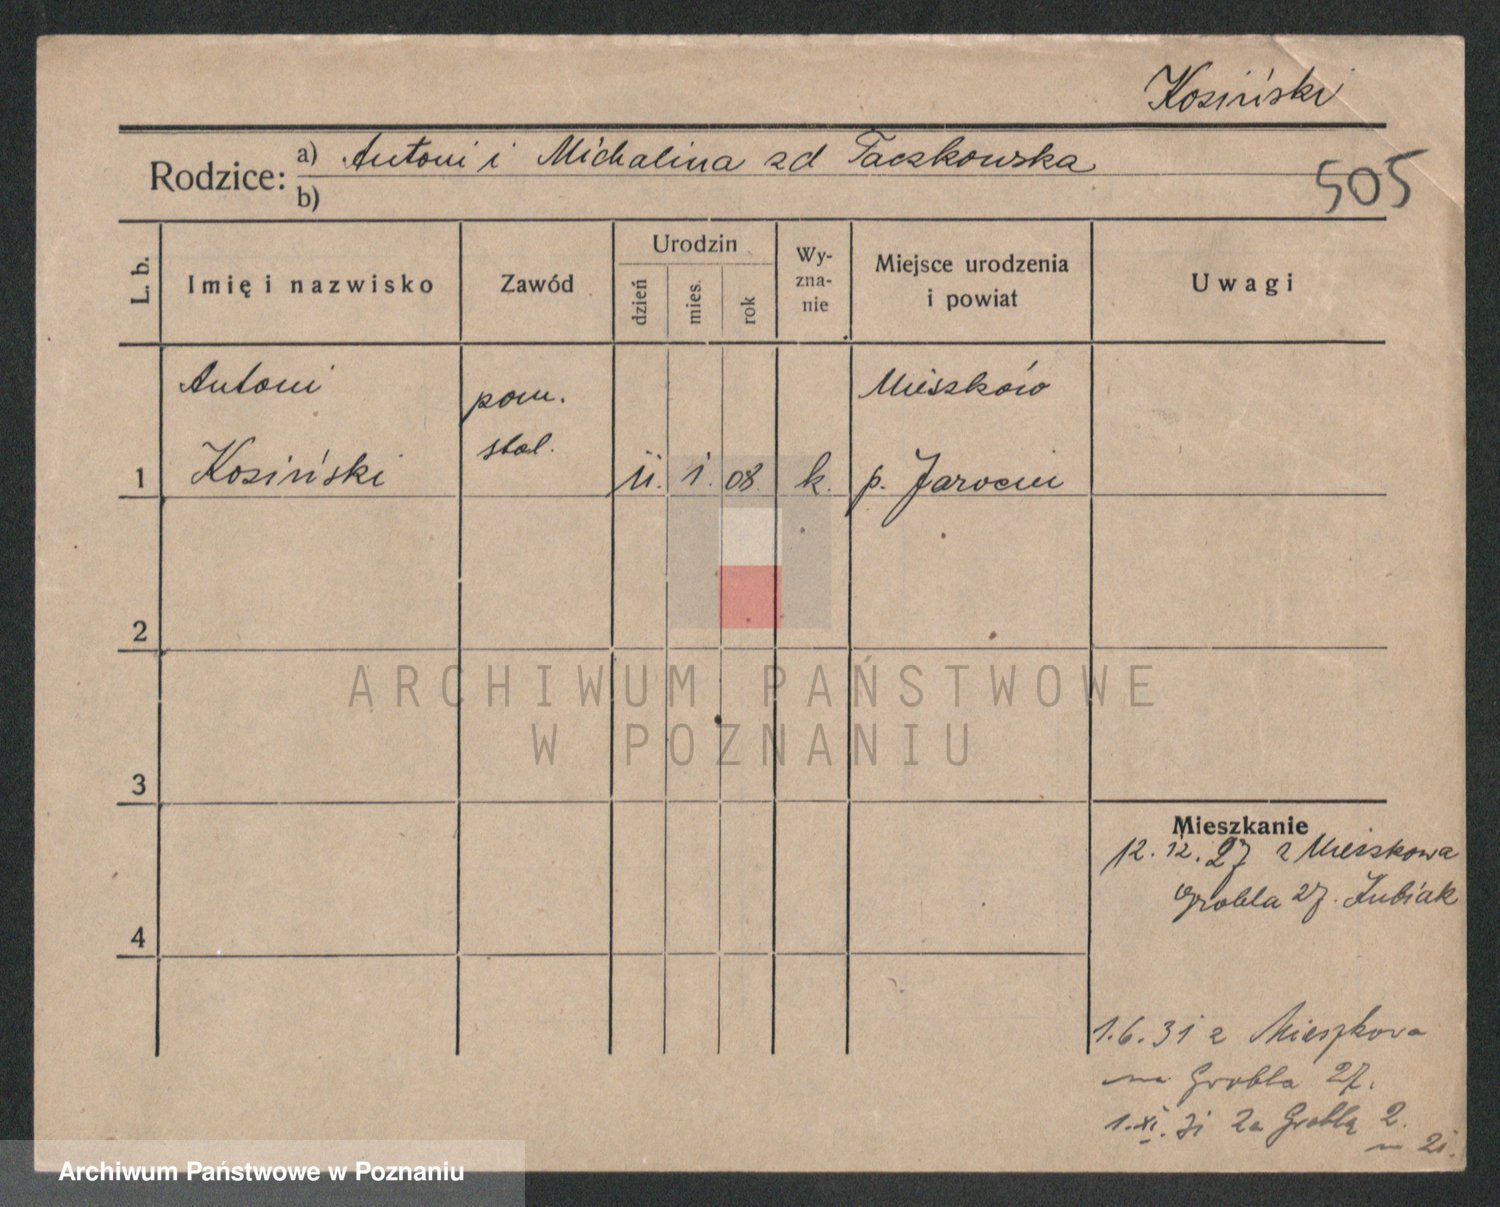 Kosiński
Rodzice: a) Antoni i Michalina zd Taczkowska
b)
505
L. b.
Imię i nazwisko
Zawód
Urodzin
dzień
mies.
rok
Wy-
zna-
nie
Miejsce urodzenia
i powiat
Uwagi
Antoni
pom.
Mieszków
stol.
1 Kosiński 11. 1. 08. k. p. Jarocin
2
ARCHIWUM PAŃSTWOWE
W POZNANIU
3
Mieszkanie
12. 12. 27 z Mieszkowa
Grobla 27. Kubiak
4
1.6.31 z Mieszkowa
na Grobla 27.
1.XI.31 Za Groblą 2.
m 21.
Archiwum Państwowe w Poznaniu